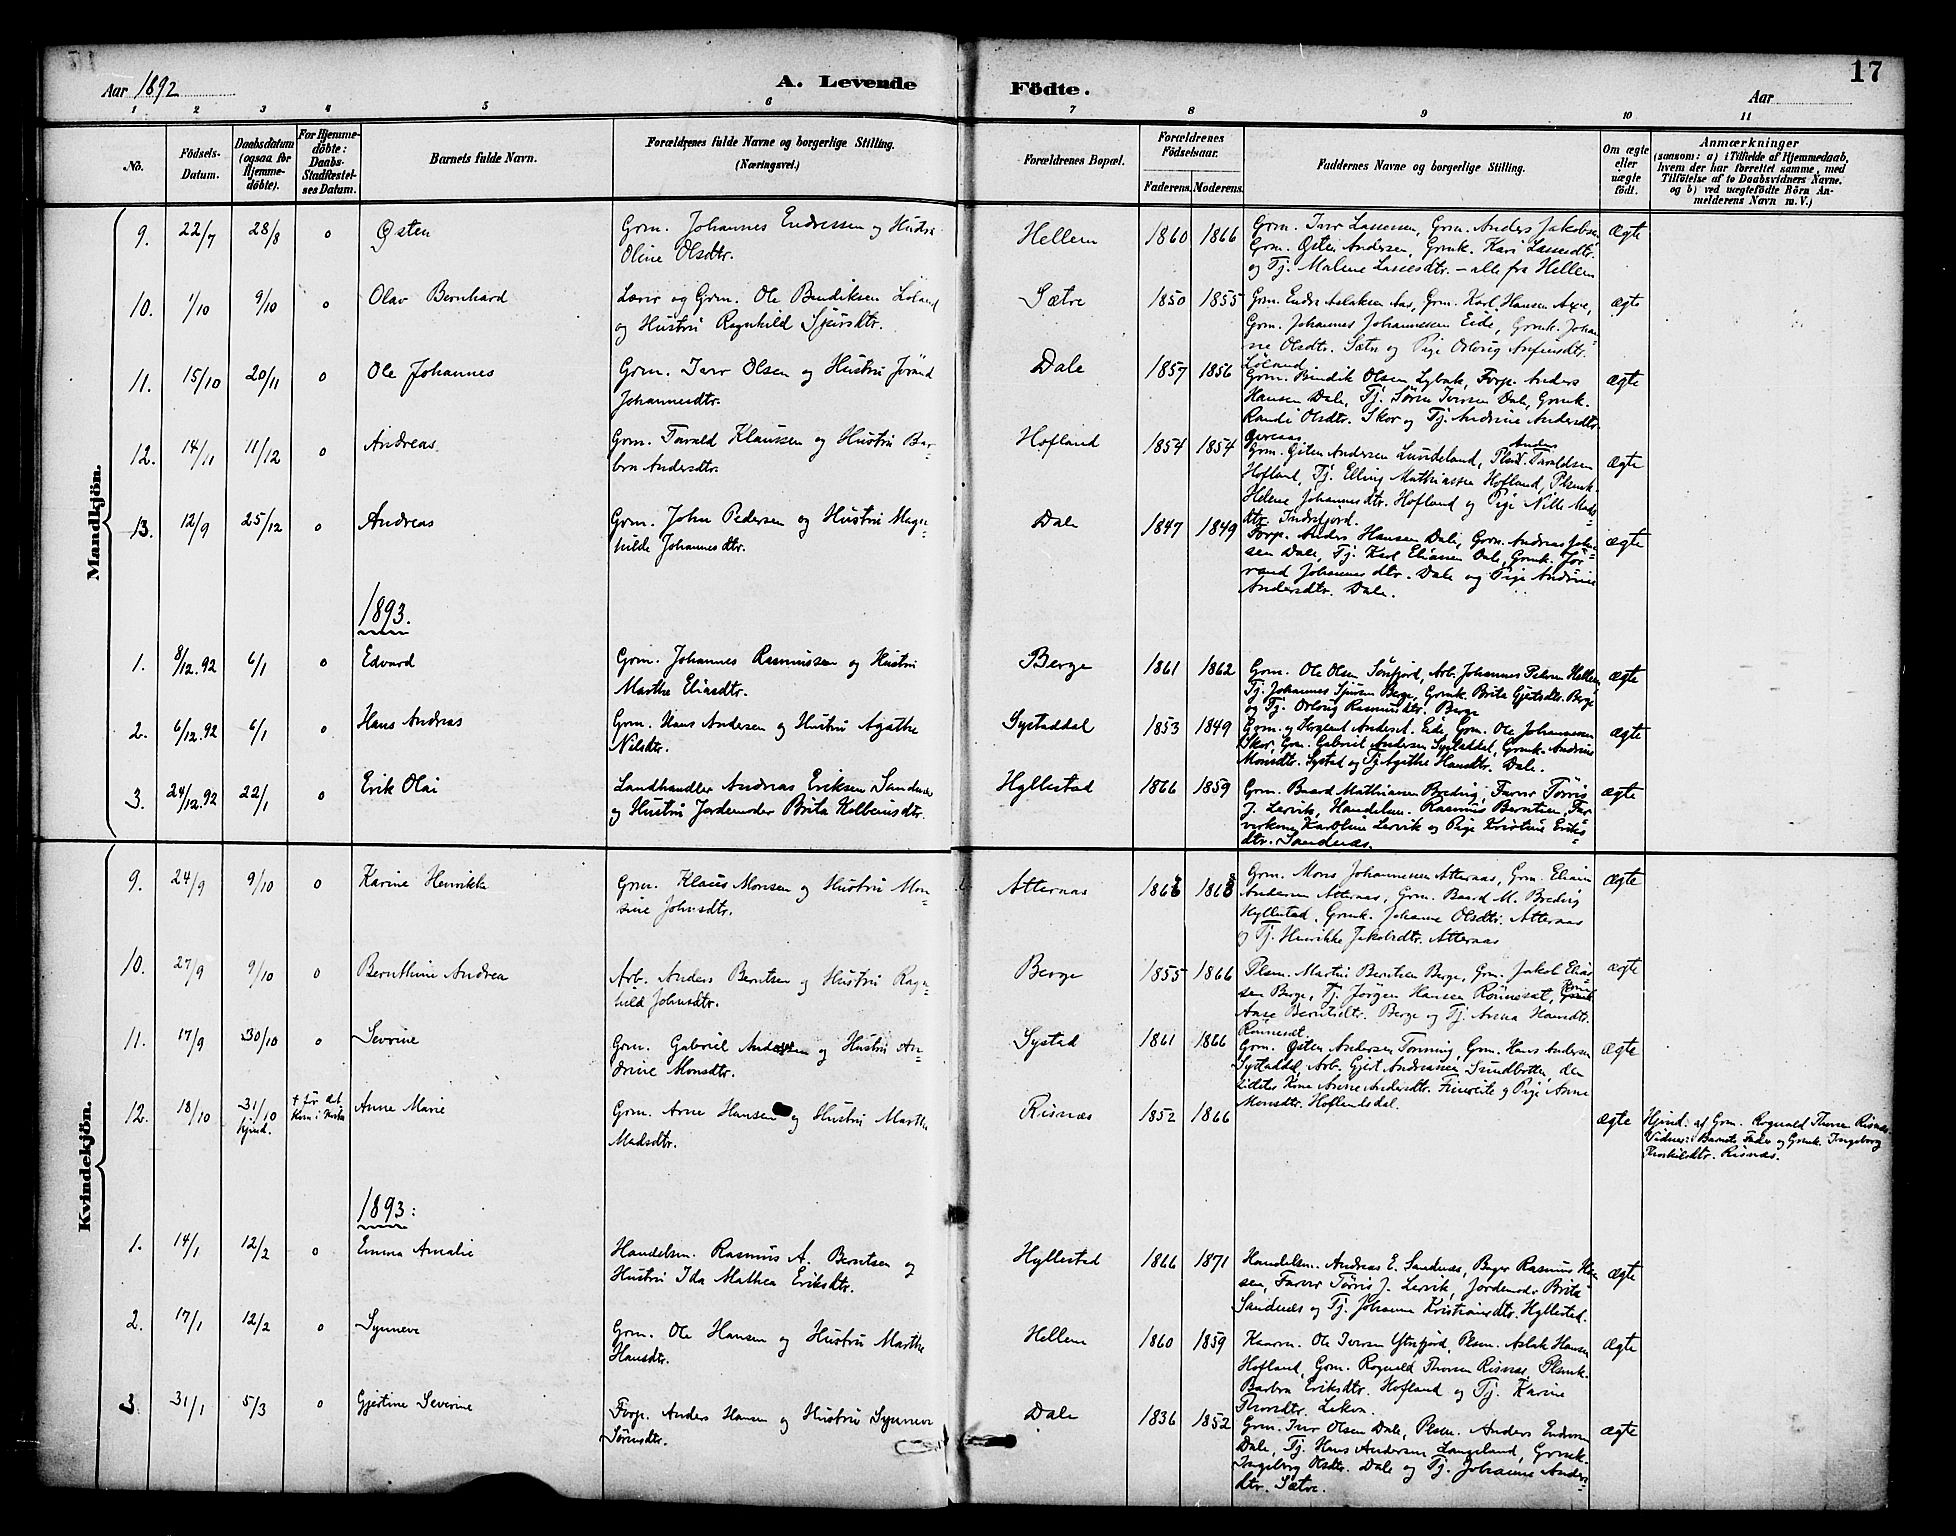 17
Aar 1892
A. Levende Födte.
Aar
1 2 3 4 5 6 7 8 9 10 11
No.
Födsels-Datum.
Daabsdatum (ogsaa for Hjemme-döbte).
For Hjemme-döbte: Daabs-Stadfæstel-ses Datum.
Barnets fulde Navn.
Forældrenes fulde Navne og borgerlige Stilling. (Næringsvei.)
Forældrenes Bopæl.
Forældrenes Födselsaar.
Faderens. Moderens.
Faddernes Navne og borgerlige Stilling.
Om ægte eller uægte födt.
Anmærkninger
(saasom: a) i Tilfælde af Hjemmedaab,
hvem der har forrettet samme, med
Tilföielse af to Daabsvidners Navne,
og b) ved uægtefödte Börn An-
melderens Navn m. V.)
Mandkjön.
9. 22/7 28/8 0 Østen
Grm. Johannes Endressen og Hustru
Oline Olsdtr.
Hellem 1860 1866
Grm. Ivar Lassesen, Grm. Anders Jakobsen
Grm. Østen Andersen, Grmk. Kari Lassedtr.
og Tj. Malene Lassesdtr. – alle fra Hellem
ægte
10. 1/10 9/10 0 Olav Bernhard
Lærer og Grm. Ole Bendiksen Løland
og Hustru Ragnhild Sjursdtr.
Sætre 1850 1855
Grm. Endre Aslaksen Aas, Grm. Karl Hansen Axe,
Grm. Johannes Johannessen Eide, Grmk. Johan-
ne Olsdtr. Sætre og Pige Olovug Anfinsdtr.
Løland
ægte
11. 15/10 20/11 0 Ole Johannes
Grm. Ivar Olsen og Hustru Jørand
Johannesdtr.
Dale 1857 1856
Grm. Bendik Olsen Lybæk, Forp. Anders
Hansen Dale, Tj. Søren Iversen Dale, Grmk.
Randi Olsdtr. Skor og Tj. Andrine Andersdtr.
ægte
12. 14/11 11/12 0 Andreas.
Grm. Tarald Klaussen og Hustru Bar-
bra Andersdtr.
Hofland 1854 1854
Grm. Giten Andersen Lundeland, Plsm. Anders Taraldsen
Hofland, Tj. Elling Mathiassen Hofland, Plsmk.
Helene Johannesdtr. Hofland og Pige Nille Mads-
dtr. Indrefjord.
ægte
13. 12/9 25/12 0 Andreas
Grm. John Pedersen og Hustru Magn-
hilde Johannesdtr.
Dale 1847 1849
Forp. Anders Hansen Dale, Grm. Andreas John-
sen Dale, Tj. Karl Eliassen Dale, Grmk. Jør-
rand Johannesdtr. Dale og Pige Andrine
Andersdtr. Dale.
ægte
1893.
1. 8/12.92 6/1 0 Edvard
Grm. Johannes Rasmussen og Hustru
Marthe Eliasdtr.
Berge 1861 1862
Grm. Ole Olsen Sørefjord, Arb. Johannes Pedersen Hellem,
Tj. Johannes Sjursen Berge, Grmk. Brita Gjertsdtr. Berge
og Tj. Olovug Rasmusdtr. Berge
ægte
2. 6/12.92 6/1 0 Hans Andreas
Grm. Hans Andersen og Hustru Agathe
Nilsdtr.
Systaddal 1853 1849
Grm. Ole Johannessen
Skor, Grm. Gabriel Andersen Systaddal, Grmk. Andrine
Monsdtr. Systad og Tj. Agithe Hansdtr. Dale.
ægte
3. 24/12.92 22/1 0 Erik Olai
Landhandler Andreas Eriksen Sandenæs
og Hustru Jordemoder Brita Kolbeinsdtr.
Hyllestad 1866 1859
Grm. Baard Mathiassen Bredvig, Farver Tørris
J. Lervik, Handelsm. Rasmus Berntsen, Far-
verkone Karoline Lervik og Pige Kristine Eriks-
dtr. Sandenæs.
ægte
Kvindekjön.
9. 24/9 9/10 0 Karine Henrikke
Grm. Klaus Monsen og Hustru Mon-
sine Johnsdtr.
Atternas 1868
Grm. Mons Johannessen Atternas, Grm. Elias
Andersen Atternas, Grm. Baard M. Bredvig
Hyllestad, Grmk. Johanne Olsdtr. Atternas
og Tj. Henrikke Jakobsdtr. Atternas
ægte
10. 27/9 9/10 0 Bernthine Andrea
Arb. Anders Berntsen og Hustru Ragn-
hild Johnsdtr.
Berge 1855 1866
Plsm. Martin Berntsen Berge, Grm. Jakob Elias-
sen Berge, Tj. Jørgen Hansen Rønneset,
Aase Berntsdtr. Berge og Tj. Anna Hansdtr.
Rønneset
ægte
11. 17/9 30/10 0 Severine
Grm. Gabriel Andersen og Hustru An-
drine Monsdtr.
Systad 1861 1866
Grm. Østen Andersen Tonning, Grm. Hans Andersen
Systaddal, Arb. Gjert Andreassen Sundbotten, den
sidstes Kone Anne Andersdtr. og Pige Anne
Monsdtr. Hoflandsdal.
ægte
12. 18/10 31/10 hjmd. † før det kom i Kirken Anne Marie
Grm. Arne Hansen og Hustru Marthe
Madsdtr.
Risnæs 1852 1866
ægte
Hjmd. af Grm. Rognald Thoresen Risnæs.
Vidner: Barnets Fader og Grmk. Ingeborg
Risnæs.
1893:
1. 14/1 12/2 0 Emma Amalie
Handelsm. Rasmus A. Berntsen og
Hustru Ida Mathea Eriksdtr.
Hyllestad 1866 1871
Handelsm. Andreas E. Sandenæs, Bager Rasmus Han-
sen, Farver Tørris J. Lervik, Jordemoder Brita
Sandenæs og Tj. Johanne Kristiansdtr. Hyllestad.
ægte
2. 17/1 12/2 0 Synneve
Grm. Ole Hansen og Hustru Marthe
Hansdtr.
Hellem 1860 1859
Kaarm. Ole Iversen Ytrefjord, Plsm. Aslak Hansen
Hofland, Grm. Rognald Thoresen Risnæs, Plsmk.
Barbra Eriksdtr. Hofland og Tj. Karine
Thoresdtr. Leken.
ægte
3. 31/1 5/3 0 Gjertine Severine
Forp. Anders Hansen og Hustru Synneve
Sørensdtr.
Dale 1836 1852
Grm. Ivar Olsen Dale, Plsm. Anders Endresen
Dale, Tj. Hans Andersen Langeland, Grmk.
Ingeborg Olsdtr. Dale og Tj. Johanne Anders-
dtr. Sætre.
ægte